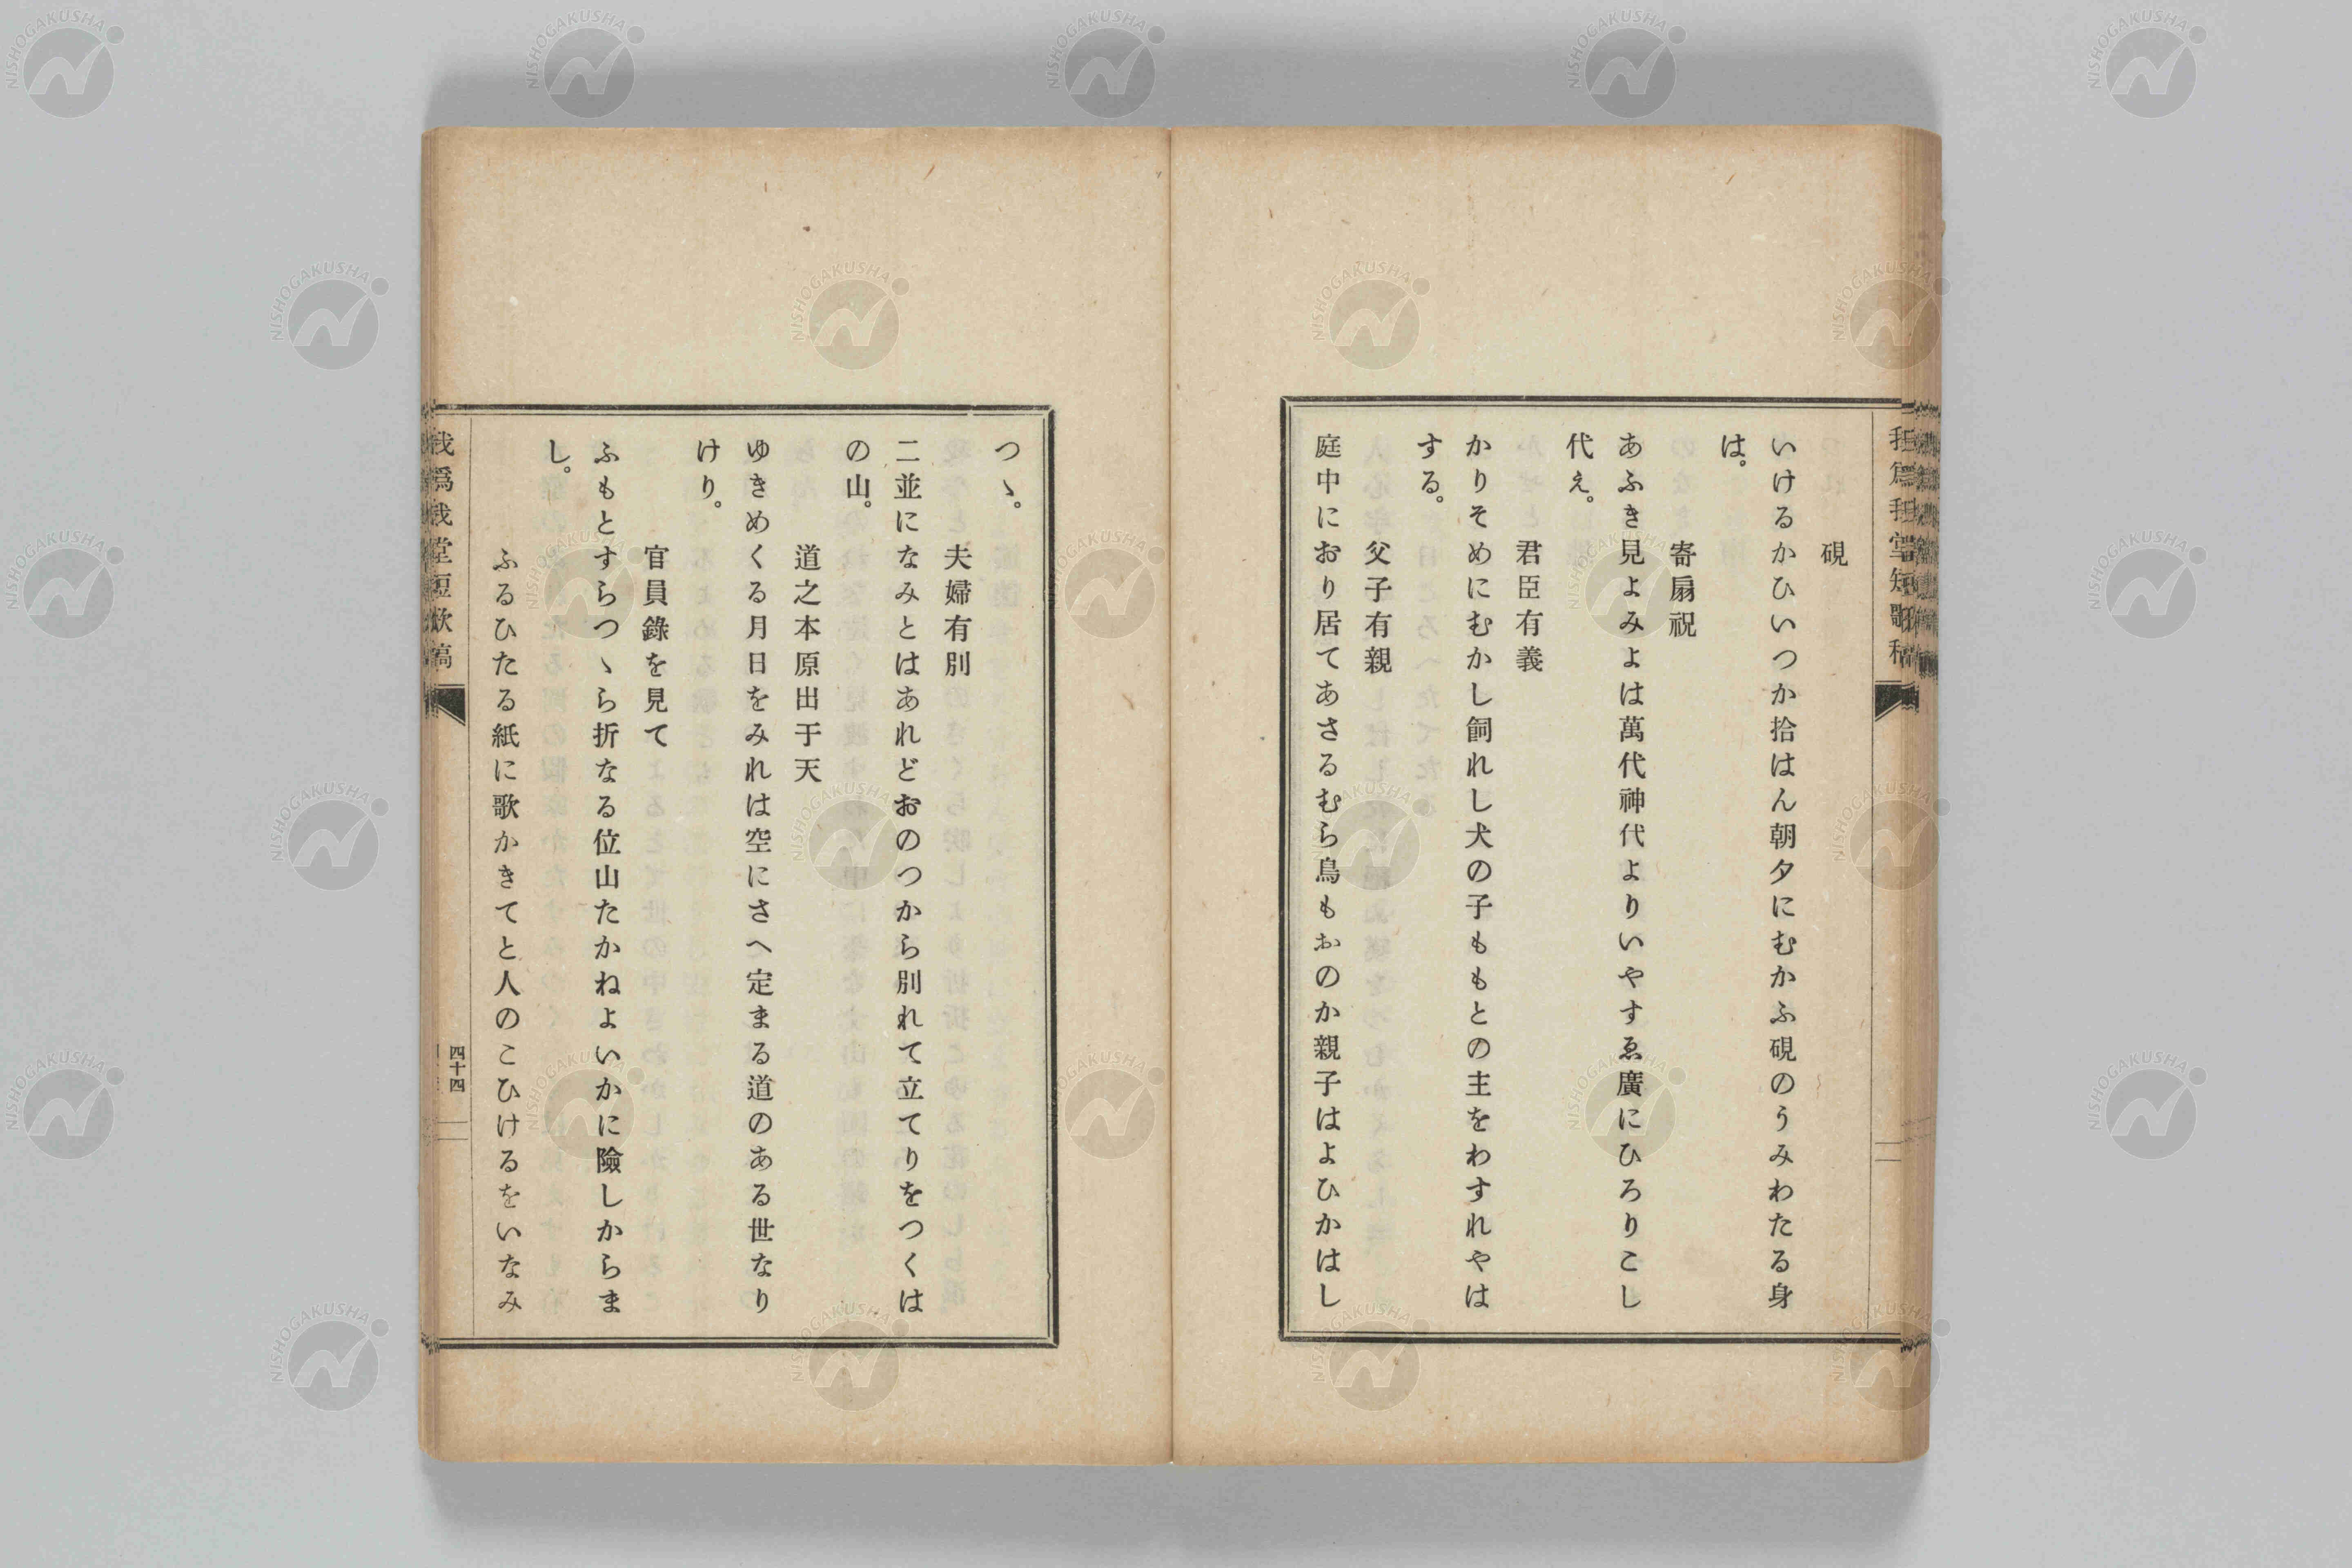 硯
いけるかひいつか拾はん朝夕にむかふ硯のうみわたる身
は。
寄扇祝
あふき見よみよは萬代神代よりいやすゑ廣にひろりこし
代え。
君臣有義
かりそめにむかし飼れし犬の子ももとの主をわすれやは
する。
父子有親
庭中におり居てあさるむら鳥もおのか親子はよひかはし
つゝ。
夫婦有別
二並になみとはあれどおのつから別れて立てりをつくは
の山。
道之本原出于天
ゆきめくる月日をみれは空にさへ定まる道のある世なり
けり。
官員錄を見て
ふもとすらつゝら折なる位山たかねよいかに險しからま
し。
ふるひたる紙に歌かきてと人のこひけるをいなみ
我爲我堂短歌稿
四十四
NISHOGAKUSHA